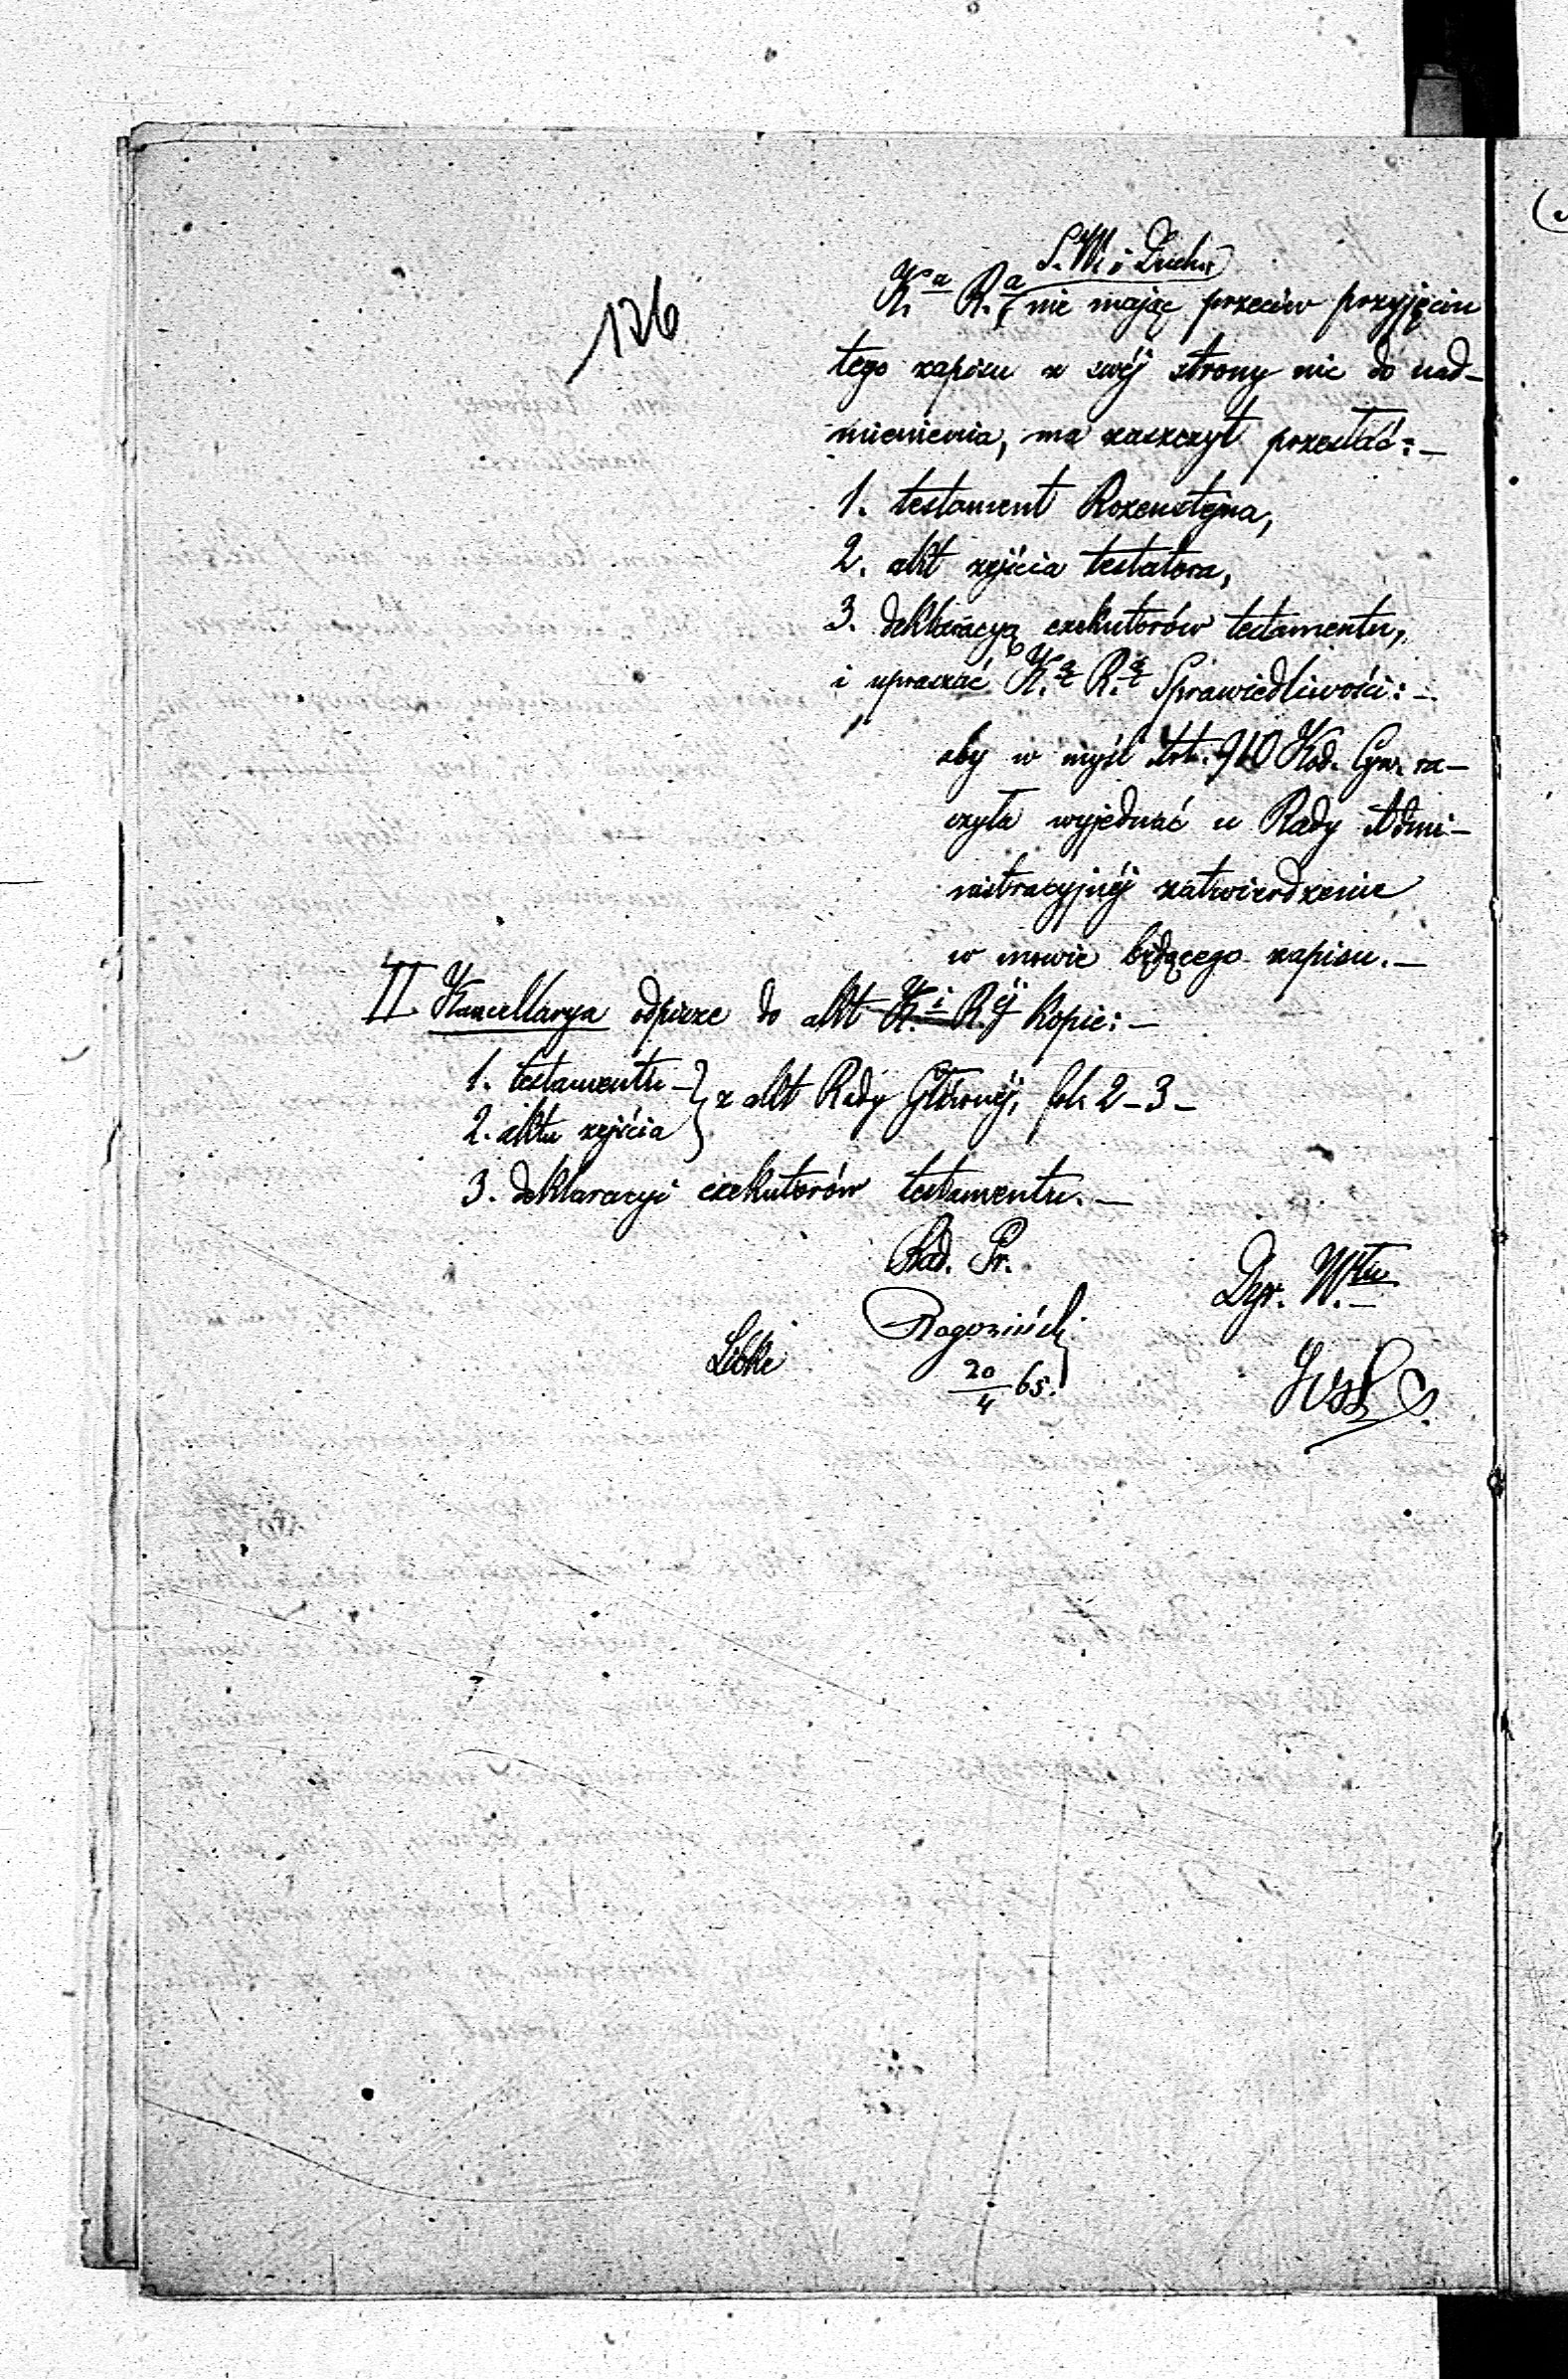 126
S. W. i Duch.
K.a R.a nie mając przeciw przyjęciu
tego zapisu z swéj strony nic do nad-
mienienia, ma zaszczyt przesłać:-
1. testament Rozensztejna,
2. akt zejścia testatora,
3. deklaracyą exekutorów testamentu,
i upraszać K. R. Sprawiedliwości:-
aby w myśl Art. 910 Kod. Cyw. ra-
czyła wyjednać u Rady Admi-
nistracyjnéj zatwierdzenie
w mowie będącego zapisu.-
II. Kancellarya odpisze do akt K.i R.éj kopie:-
1. testamentu - } z akt Rady Głównéj, fol. 2-3-
2. aktu zejścia
3. deklaracyi exekutorów testamentu.-
Rad. Pr.
Dyr. W.łu
Rogoziński
20/4 65.